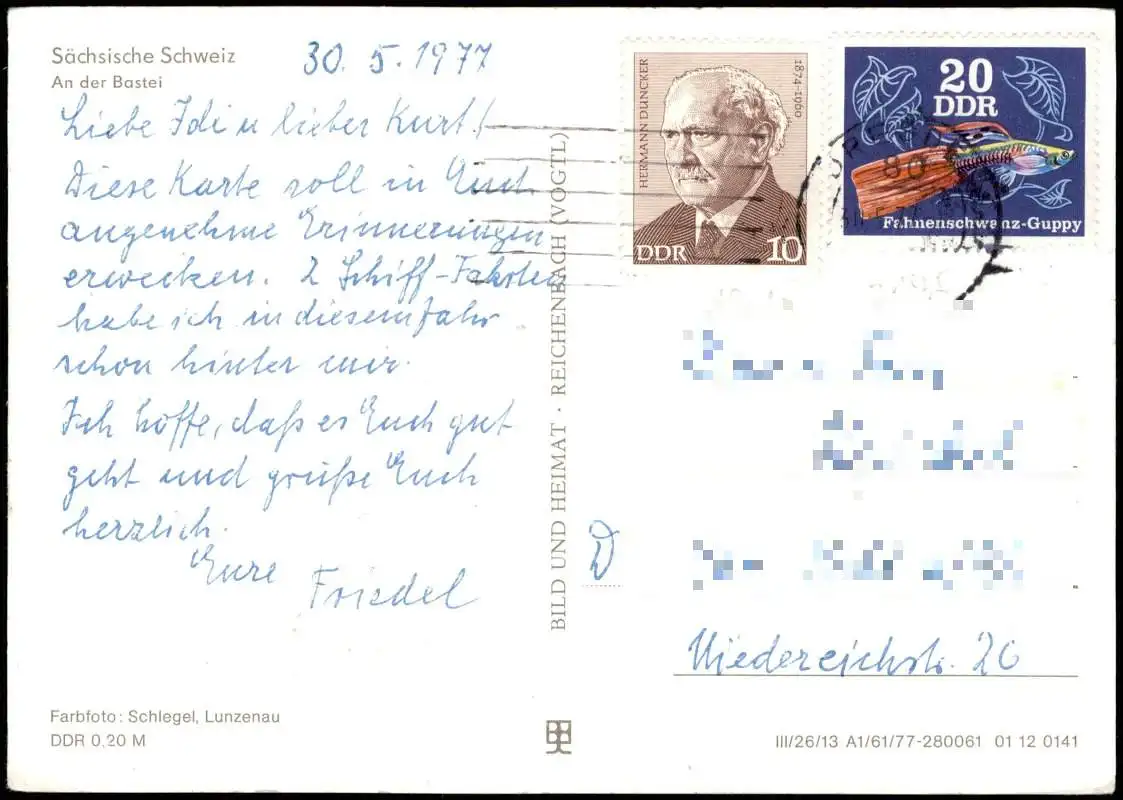 Sächsische Schweiz
An der Bastei
30. 5. 1977
Liebe Idi u lieber Kurt!
Diese Karte soll in Euch
angenehme Erinnerungen
erwecken. 2 Schiff-Fahrten
habe ich in diesem Jahr
schon hinter mir.
Ich hoffe, daß es Euch gut
geht und grüße Euch
herzlich.
Eure Friedel
Farbfoto: Schlegel, Lunzenau
DDR 0,20 M
BILD UND HEIMAT · REICHENBACH (VOGTL)
HERMANN DUNCKER
1874-1960
DDR 10
20
DDR
Fahnenschwanz-Guppy
80
D
Niedereichstr. 26
III/26/13 A1/61/77-280061 01 12 0141